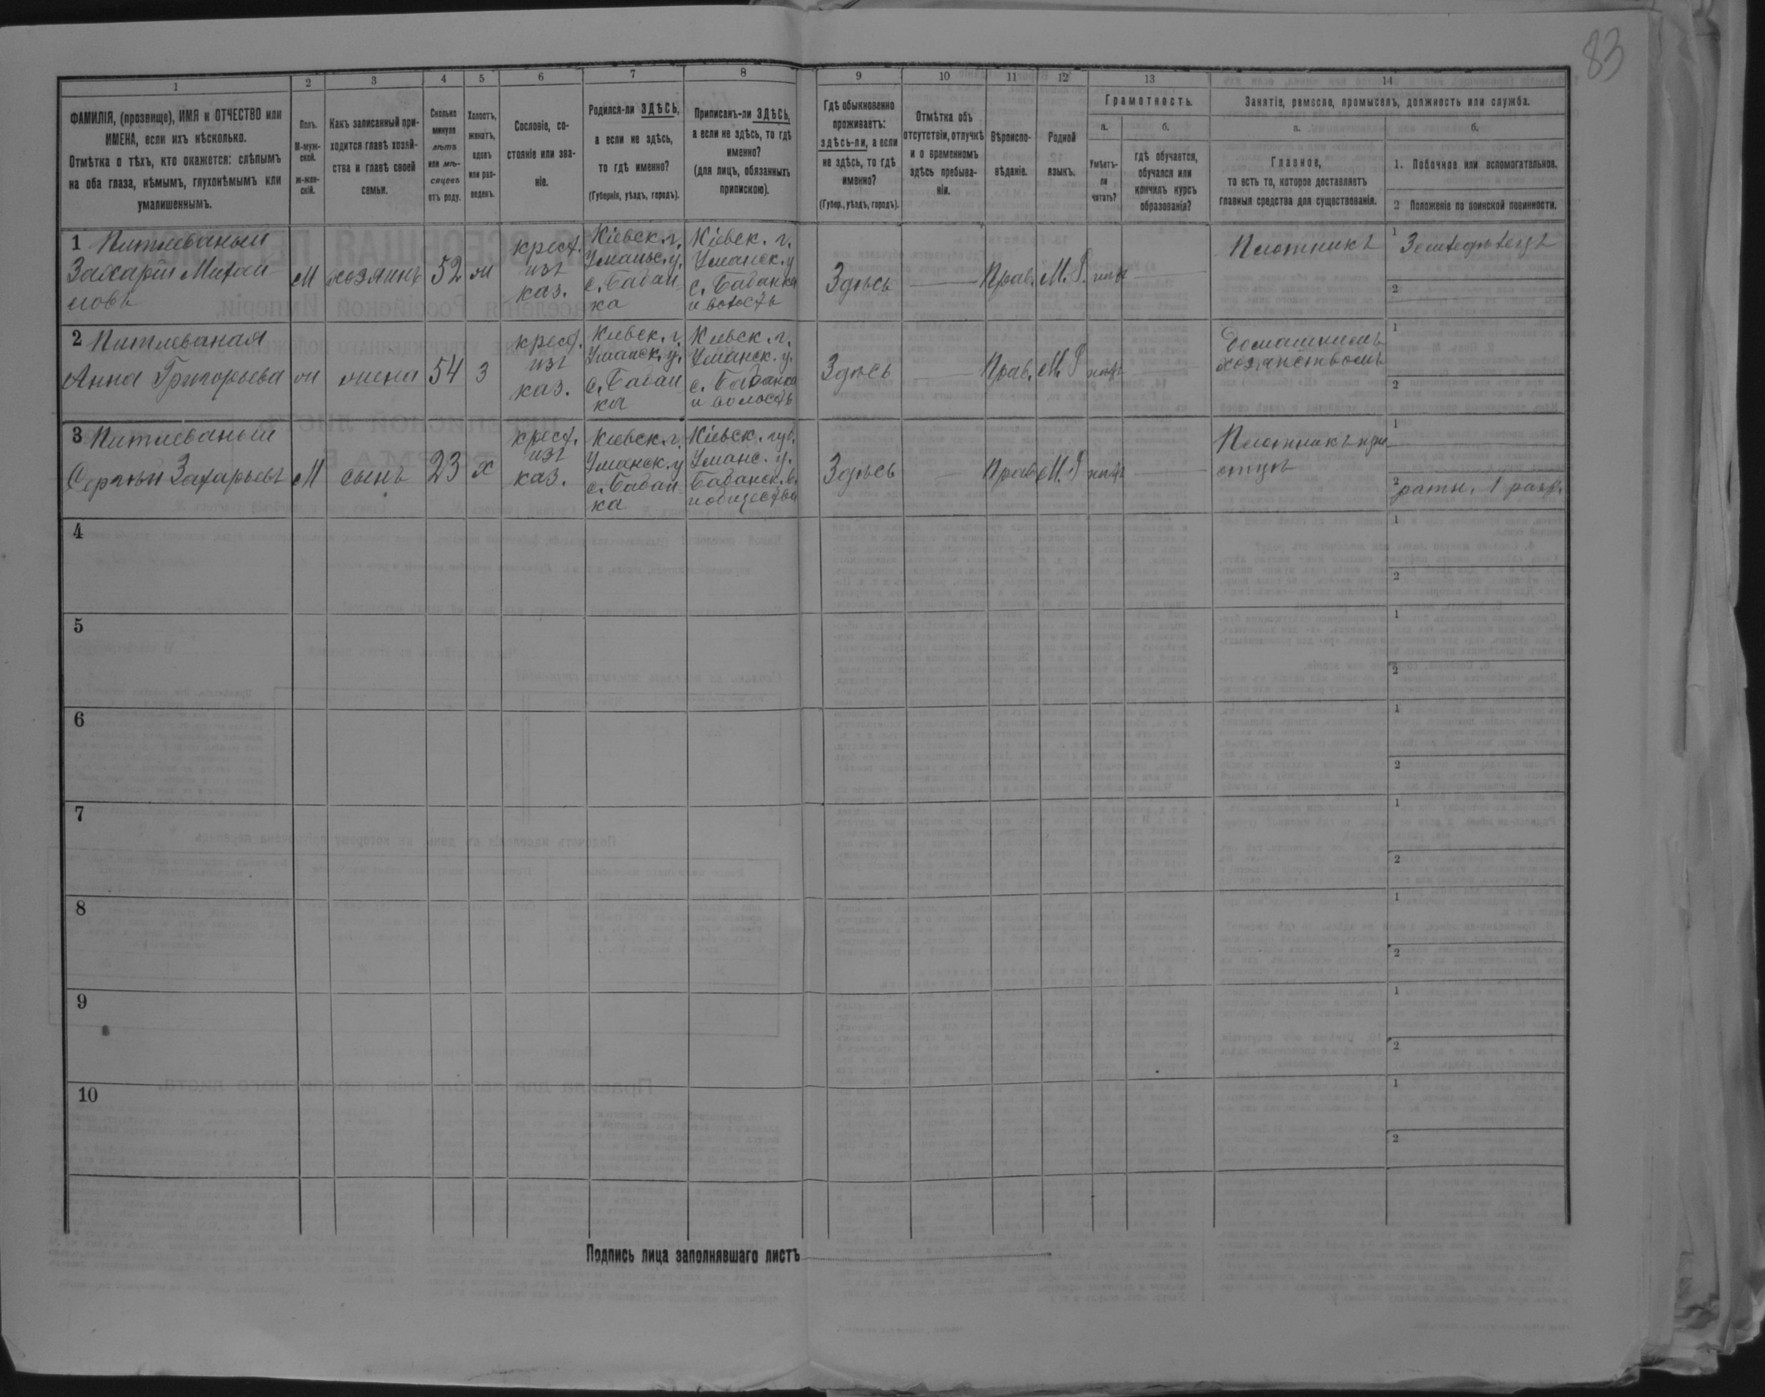 83
1
2
3
4
5
6
7
8
9
10
11
12
13
14
ФАМИЛІЯ, (прозвище), ИМЯ и ОТЧЕСТВО или
ИМЕНА, если ихъ нѣсколько.
Отмѣтка о тѣхъ, кто окажется: слѣпымъ
на оба глаза, нѣмымъ, глухонѣмымъ или
умалишеннымъ.
Полъ.
М-муж-
ской.
ж-жен-
скій.
Какъ записанный при-
ходится главѣ хозяй-
ства и главѣ своей
семьи.
Сколько
минуло
лѣтъ
или мѣ-
сяцевъ
отъ роду.
Холостъ,
женатъ,
вдовъ
или раз-
веденъ.
Сословіе, со-
стояніе или зва-
ніе.
Родился-ли ЗДѢСЬ,
а если не здѣсь,
то гдѣ именно?
(Губернія, уѣздъ, городъ).
Приписанъ-ли ЗДѢСЬ,
а если не здѣсь, то гдѣ
именно?
(для лицъ, обязанныхъ
припискою).
Гдѣ обыкновенно
проживаетъ:
здѣсь-ли, а если
не здѣсь, то гдѣ
именно?
(Губер., уѣздъ, городъ).
Отмѣтка объ
отсутствіи, отлучкѣ
и о временномъ
здѣсь пребыва-
ніи.
Вѣроиспо-
вѣданіе.
Родной
языкъ.
Грамотность.
а.
б.
Умѣетъ-
ли
читать?
гдѣ обучается,
обучался или
кончилъ курсъ
образованія?
Занятіе, ремесло, промыселъ, должность или служба.
а.
б.
Главное,
то есть то, которое доставляетъ
главныя средства для существованія.
1. Побочное или вспомогательное.
2 Положеніе по воинской повинности.
1 Питлеваный
Захарій Михай
ловъ
М
хозяинъ
52
ж
крест.
изъ
каз.
Кіевск. г.
Уманьс. у.
с. Бабан
ка
Кіевск. г.
Уманск. у
с. Бабанка
и волость
Здѣсь
Прав.
М. Р.
нѣтъ
Плотникъ
1 Земледѣлецъ
2
2 Питлеваная
Анна Григорьева
ж
жена
54
З
крест.
изъ
каз.
Киевск. г.
Уманск. у.
с. Бабан
ка
Киевск. г.
Уманск. у.
с. Бабанка
и волость
Здѣсь
Прав.
М. Р
нѣтъ
Домашнимъ
хозяйствомъ
1
2
3 Питлеваный
Сергѣй Захарьевъ
М
сынъ
23
х
крест.
изъ
каз.
Киевск. г.
Уманск. у
с. Бабан
ка
Кіевск. губ.
Уманс. у.
Бабанск. в.
и общества
Здѣсь
Прав
М. Р
нѣтъ
Плотникъ при
отцѣ
1
2 ратн. 1 разр.
4
1
2
5
1
2
6
1
2
7
1
2
8
1
2
9
1
2
10
1
2
Подпись лица заполнявшаго листъ